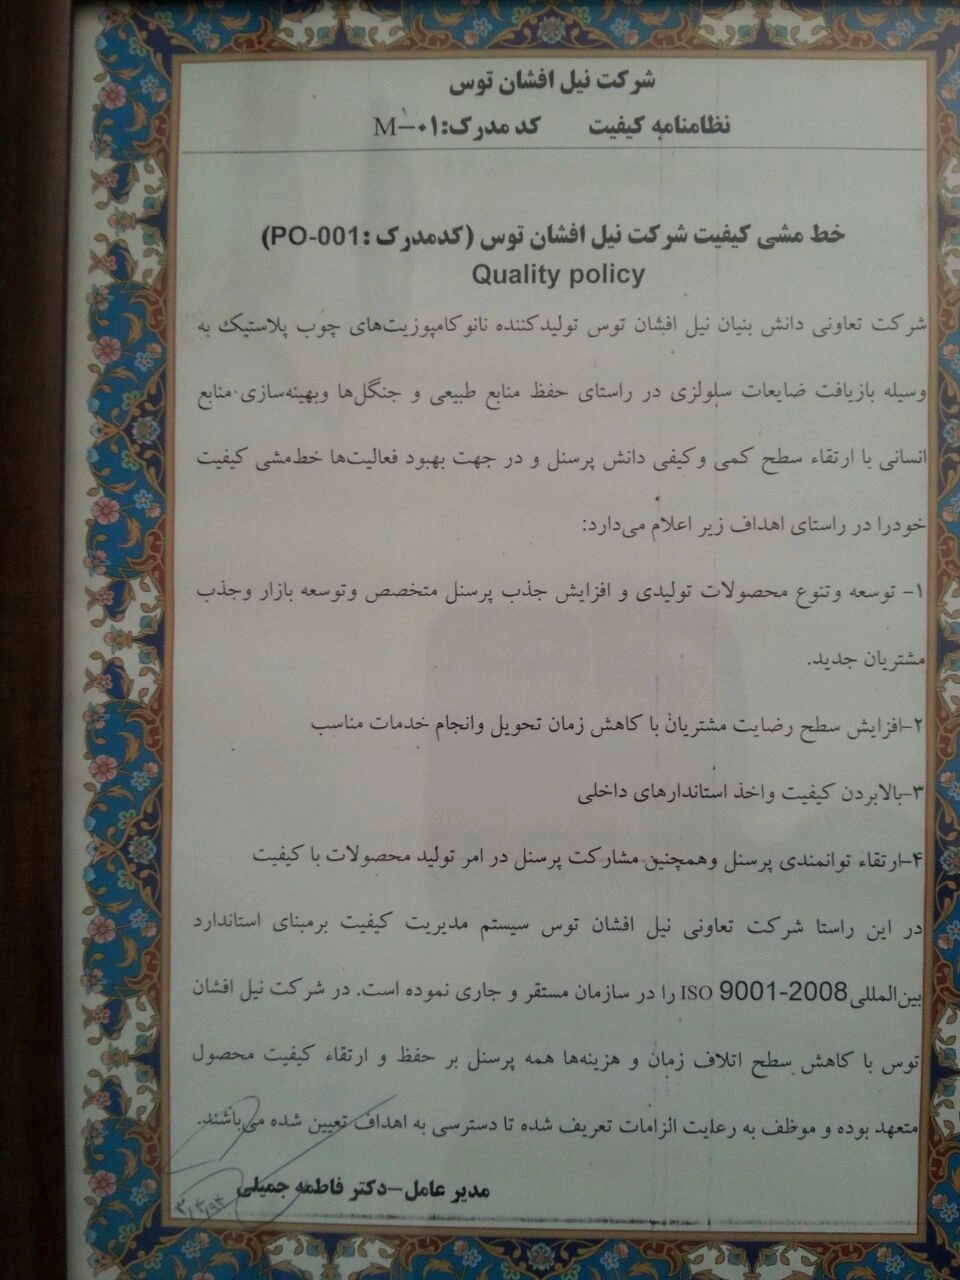 شرکت نیل افشان توس
نظامنامه کیفیت کد مدرک:M-۰۱
خط مشی کیفیت شرکت نیل افشان توس (کدمدرک :PO-001)
Quality policy
شرکت تعاونی دانش بنیان نیل افشان توس تولیدکننده نانوکامپوزیت‌های چوب پلاستیک به
وسیله بازیافت ضایعات سلولزی در راستای حفظ منابع طبیعی و جنگل‌ها وبهینه‌سازی منابع
انسانی با ارتقاء سطح کمی وکیفی دانش پرسنل و در جهت بهبود فعالیت‌ها خط‌مشی کیفیت
خودرا در راستای اهداف زیر اعلام می‌دارد:
۱- توسعه وتنوع محصولات تولیدی و افزایش جذب پرسنل متخصص وتوسعه بازار وجذب
مشتریان جدید.
۲-افزایش سطح رضایت مشتریان با کاهش زمان تحویل وانجام خدمات مناسب
۳-بالابردن کیفیت واخذ استاندارهای داخلی
۴-ارتقاء توانمندی پرسنل وهمچنین مشارکت پرسنل در امر تولید محصولات با کیفیت
در این راستا شرکت تعاونی نیل افشان توس سیستم مدیریت کیفیت برمبنای استاندارد
بین‌المللی ISO 9001-2008 را در سازمان مستقر و جاری نموده است. در شرکت نیل افشان
توس با کاهش سطح اتلاف زمان و هزینه‌ها همه پرسنل بر حفظ و ارتقاء کیفیت محصول
متعهد بوده و موظف به رعایت الزامات تعریف شده تا دسترسی به اهداف تعیین شده می‌باشند.
مدیر عامل-دکتر فاطمه جمیلی